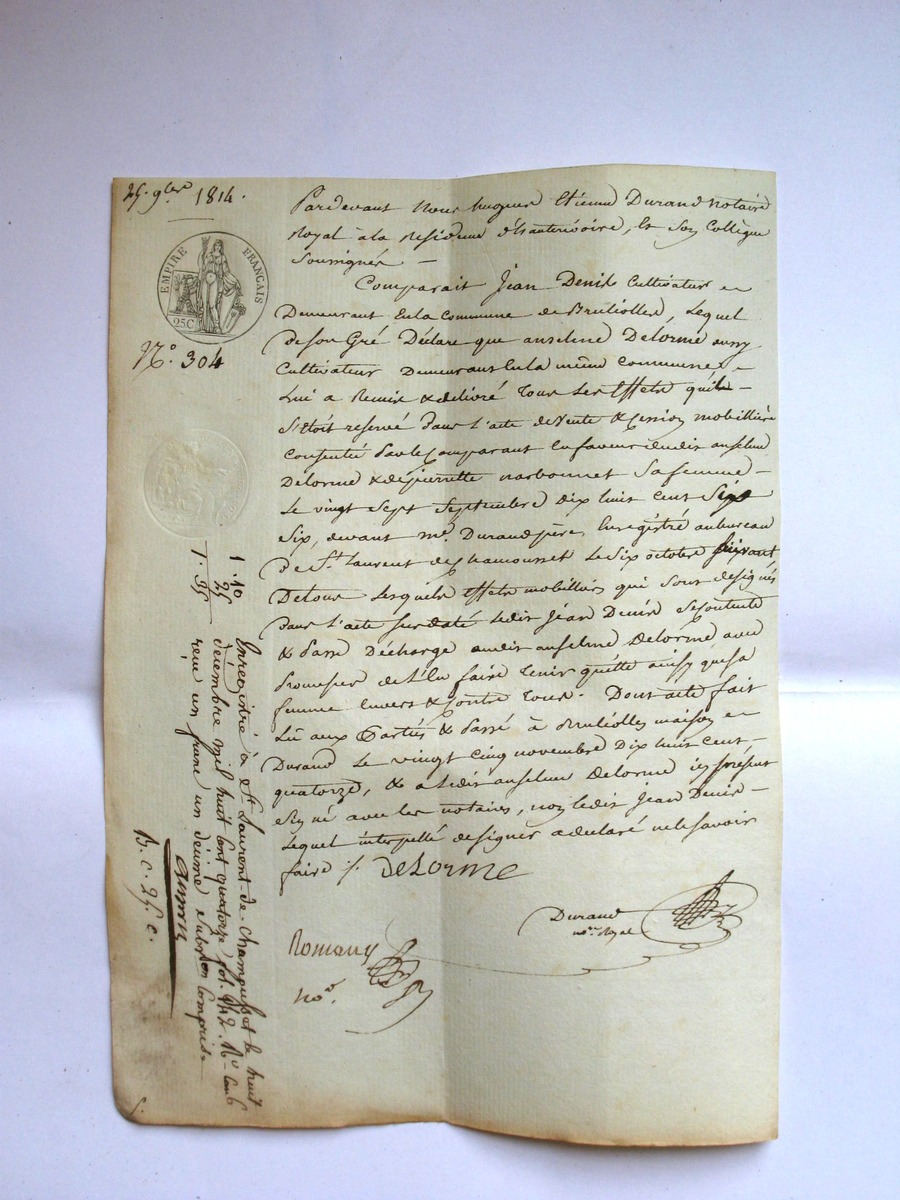 25. 9bre 1814.
EMPIRE FRANÇAIS
25C
No. 304
Pardevant Nous hugues Etienne Durand notaire
Royal à la Residence d'hauterivoire, & Son Collègue
Soussignés —
Comparait Jean Denis Cultivateur
Demeurant En la Commune de Brullioles, Lequel
de son Gré Déclare que anselme Delorme aussy
Cultivateur Demeurant En la même commune
Lui a Remis & délivré Tous Les Effets qu'il
S'étoit reservé Dans L'acte de Vente & Cession mobilliaire
Consentie Par le Comparant En faveur dudit anselme
Delorme & de pierrette narbonnet Sa femme —
Le vingt Sept Septembre Dix huit Cent
Six, devant me. Durand père, Enregistré au bureau
De St. Laurent de Chamousset Le Six octobre Suivant
De tous Lesquels Effets mobilliers qui Sont designés
Dans L'acte Sus daté Ledit Jean Denis Se Contente
& Passe Décharge audit anselme Delorme avec
Promesse de L'En faire Tenir quitte aussy que sa
femme Envers & Contre Tous. Dont acte fait
Lû aux Parties & Passé à Brullioles maison
Durand Le vingt Cinq novembre Dix huit Cent
quatorze, & a Ledit anselme Delorme icy présent
Signé avec les notaires, non Ledit Jean Denis —
Lequel interpellé de signer a declaré ne le savoir
faire /.
Delorme
Durand
nore. Royal
Romany
nore.
1. 10
25
1. 35
Enregistré à St. Laurent de Chamousset le huit
décembre mil huit cent quatorze fol. 142. Ro.
reçu un franc un décime Subvon Comprise
B. C. 25. c.